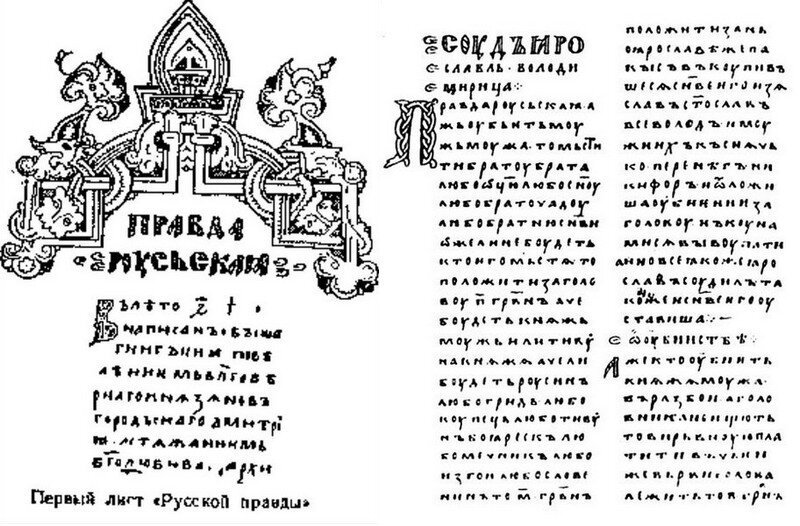 ПРАВДА
РУСЬСКАꙖ
Въ лѣто
написанъ бꙑша
книгъ
городьскаго дмитрі
Первый лист «Русской правды»
СОУДЪ ꙖРО
славль · володи
Правда роусьскаꙗ · а
жь оубьѥть моу
жь моужа · то мьсти
ти братоу брата
любо ѿцю любо сн҃оу
любо братоучадоу
любо братню сн҃ви
ѡже ли не боудеть
кто ѥго мьстѧ то
положити за голо
воу п҃ грвн҃ъ аче
боудеть кнѧжь
моужь или тиоу
на кнѧжа аче ли
боудеть роусинъ
любо гридь любо
коупець любо тивоу
нъ боꙗрескъ лю
бо мечникъ любо
изгои любо слове
нинъ то м҃ грвн҃ъ
положити за нь
по ꙗрославѣ же па
кы съвъкоупивъ
шесѧ сн҃ве ѥго изѧ
славъ ст҃ославъ
всеволодъ и моу
жи ихъ къснѧчь
ко перенѣгъ ни
кифоръ и ѿложи
ша оубиѥниѥ за
головоу нъ коуна
ми сѧ выкоупати
а ино все ꙗкоже ꙗро
славъ соудилъ та
коже и сн҃ве ѥго оу
ставиша
Ѡ оубииствѣ
Аже кто оубиѥть
кнѧжа моужа
въ разбои а голо
вника не ищють
то вирьвноую пла
тити въ чьѥи
же вьрви голова
лежить то п҃ грвн҃ъ